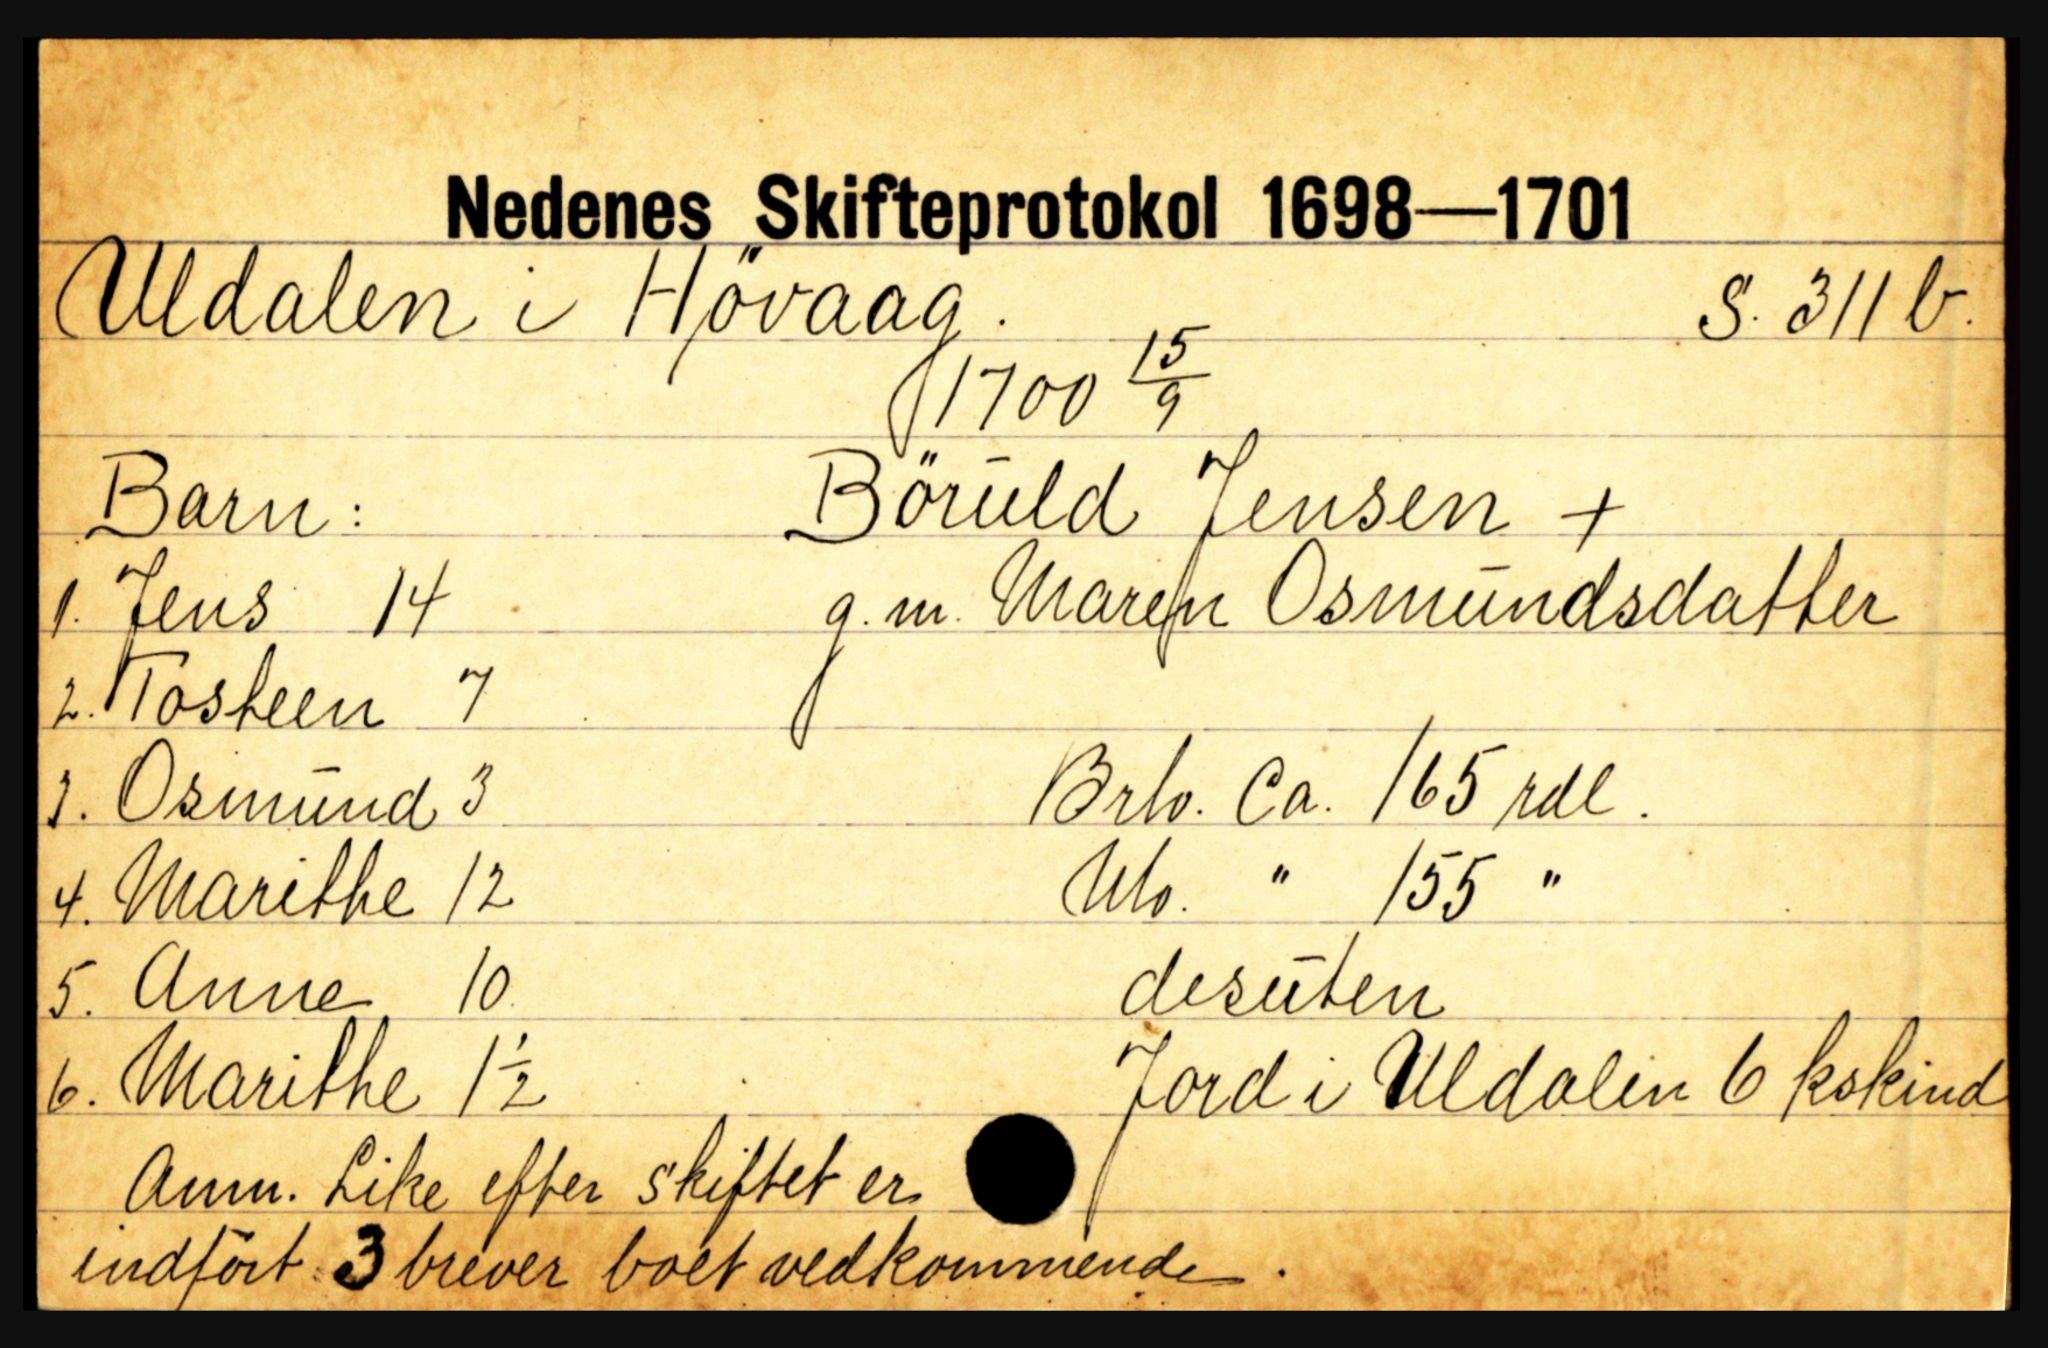 Nedenes Skifteprotokol 1698—1701
Uldalen i Hövaag. S. 311 b.
1700 15/9
Barn: Böruld Jensen +
1. Jens 14 g. m. Maren Osmundsdatter
2. Tosteen 7
3. Osmund 3 Brto. Ca. 165 rdl.
4. Marithe 12 Nto. " 155 "
5. Anne 10 desuten
6. Marithe 1½ Jord i Uldalen 6 kskind
Anm. Like efter skiftet er
indfört 3 brever boet vedkommende.